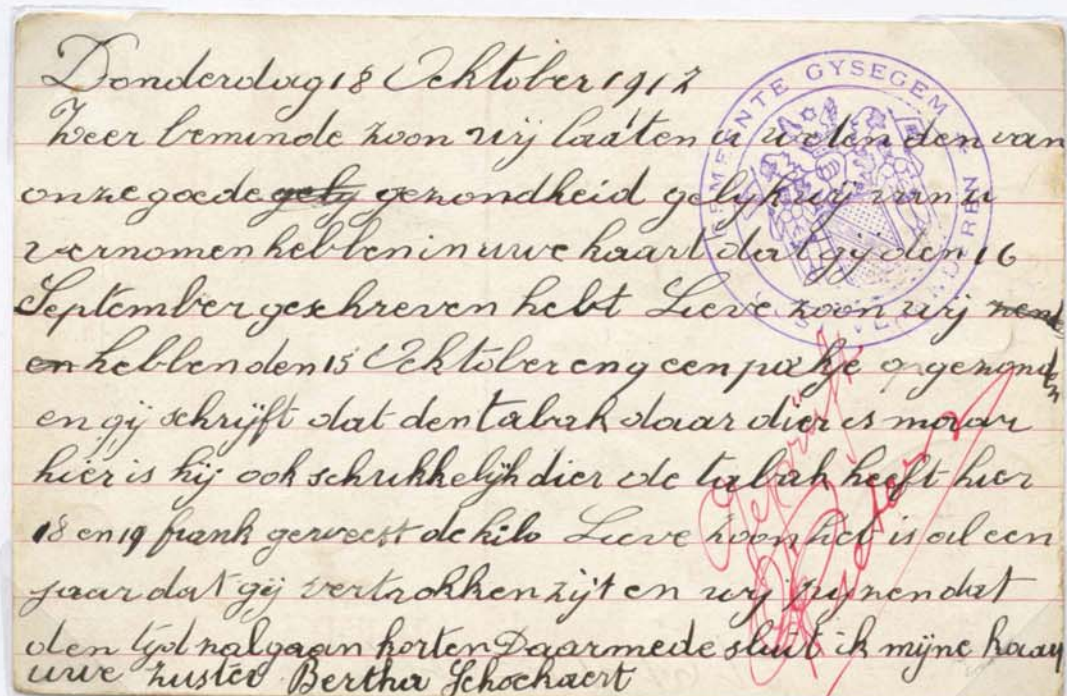 Donderdag 18 Ocktober 1917
Zeer beminde zoon wij laaten u weten den van
onze goede gely gezondheid gelyk wij van u
vernomen hebben in uwe kaart dat gij den 16
September geschreven hebt Lieve zoon wij zend
en hebben den 15 Ocktober eng een pakje opgezonden
en gij schrijft dat den tabak daar dier is maar
hier is hij ook schrikkelijk dier de tabak heeft hier
18 en 19 frank geweest de kilo Lieve zoon het is al een
jaar dat gij vertrokken zijt en wij zijnen dat
den tijd zal gaan korten Daarmede sluit ik mijne kaart
uwe zuster Bertha Schockaert
GEMEENTE GYSEGEM
OOST VLAANDEREN
Geprüft